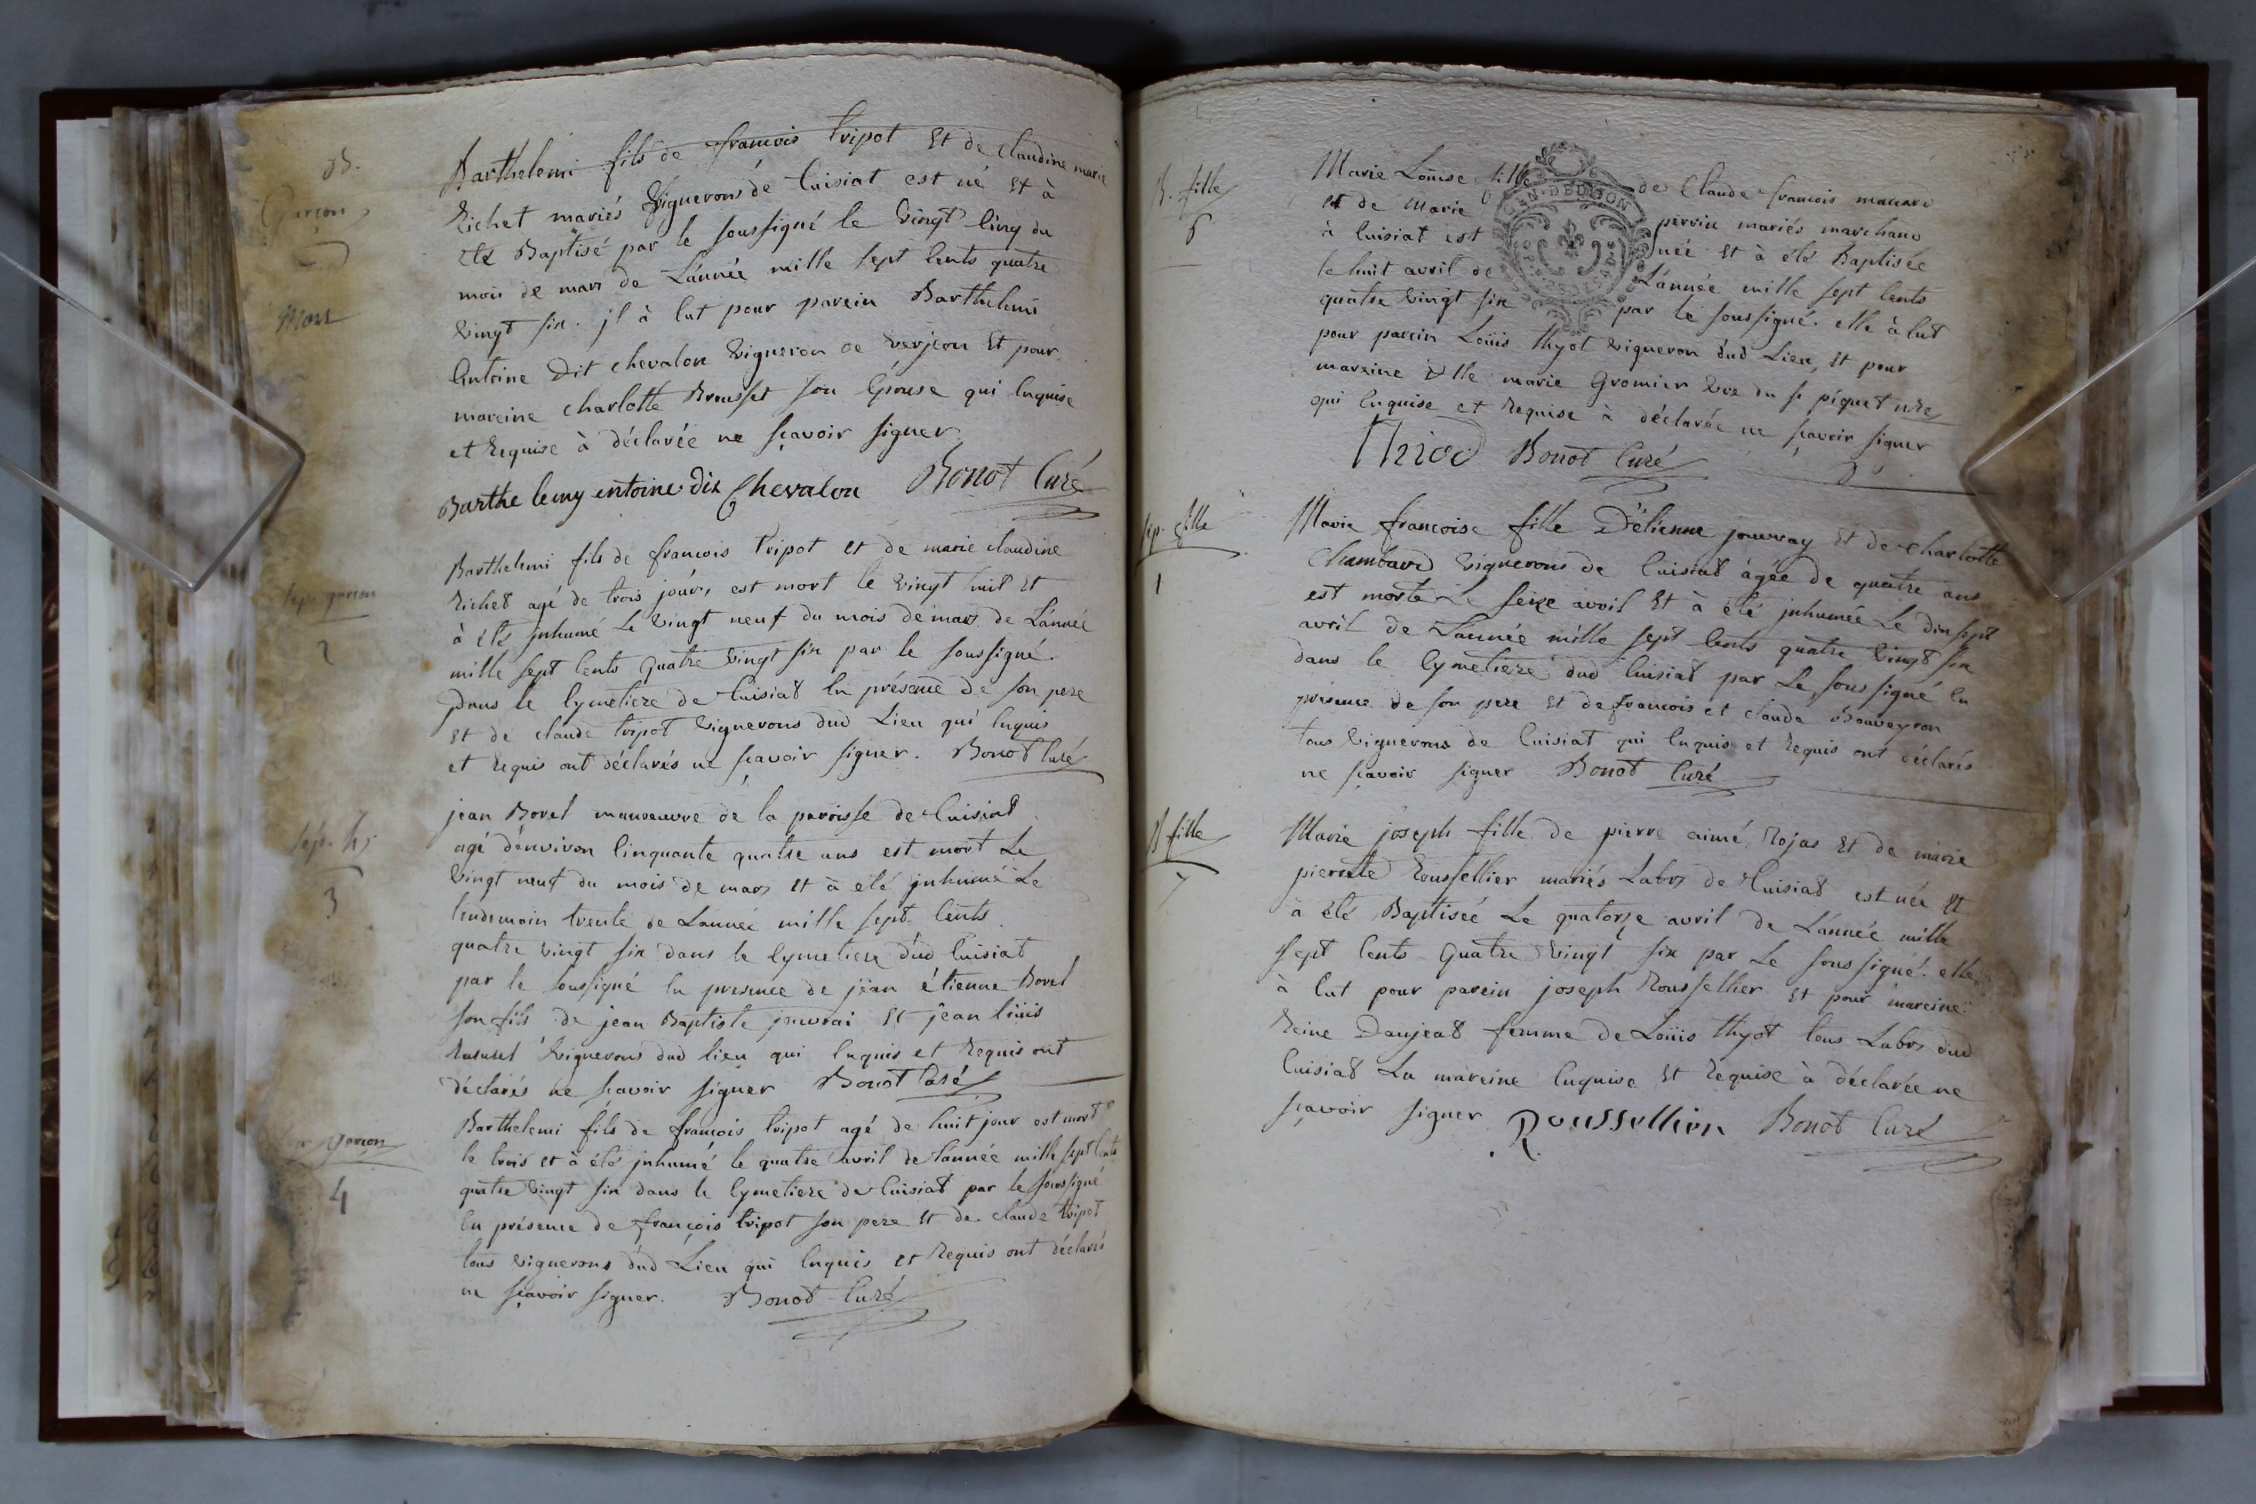 B.
Garçon
5
Mort
Barthelemi fils de francois tripot Et de claudine marie
Richet mariés Vignerons de Cuisiat est né Et à
Eté Baptisé par le soussigné le Vingt Cinq du
mois de mars de L'année mille sept Cents quatre
Vingt six. jl à Eut pour parein Barthelemi
Entoine dit chevalon Vigneron de verjeon Et pour
mareine charlotte Brousset son Epouse qui Enquise
et Requise à déclarée ne sçavoir signer
Barthelemy entoine dit Chevalon Bonot Curé
sep. garcon
2
Barthelemi fils de francois tripot et de marie claudine
Richet agé de trois jours, est mort le Vingt huit Et
à été jnhumé Le Vingt neuf du mois de mars de L'année
mille sept Cents Quatre Vingt six par le soussigné
Dans le Cymetiere de Cuisiat En présence de son pere
Et de claude tripot Vignerons dud Lieu qui Enquis
et Requis ont déclarés ne sçavoir signer. Bonot Curé
sep. h
3
jean Borel manoeuvre de la paroisse de Cuisiat
agé d'environ Cinquante quatre ans est mort Le
Vingt neuf du mois de mars et à été jnhumé Le
lendemain trente de L'année mille sept Cents
quatre Vingt six dans le Cymetiere dud Cuisiat
par le soussigné En presence de jean étienne Borel
son fils de jean Baptiste jouvrai Et jean loüis
Vignerons dud lieu qui Enquis et Requis ont
déclarés ne sçavoir signer Bonot Curé
garcon
4
Barthelemi fils de francois tripot agé de huit jour est mort
le trois et à été jnhumé le quatre avril de L'année mille sept Cents
quatre Vingt six dans le Cymetiere de Cuisiat par le soussigné
En présence de françois tripot son pere Et de claude tripot
tous vignerons dud Lieu qui Enquis et Requis ont déclarés
ne sçavoir signer. Bonot Curé
B. fille
6
Marie Loüise fille de Claude francois
et de Marie pervin mariés marchand
à Cuisiat est née Et à été Baptisée
le huit avril de L'année mille sept Cents
quatre Vingt six par le soussigné. elle à Eut
pour parein Loüis thyot Vigneron dud Lieu, Et pour
mareine Dlle marie Gromier Vve du sr piquet nre
qui Enquise et Requise à déclarée ne sçavoir signer
Bonot Curé
GEN. DE DIJON
sep. fille
1
Marie francoise fille D'étienne jouvray Et de charlotte
Chambard Vignerons de Cuisiat àgée de quatre ans
est morte Le seize avril Et à été jnhumée Le dix sept
avril de L'année mille sept Cents quatre Vingt six
dans le Cymetiere dud Cuisiat par Le soussigné En
présence de son pere Et de francois et claude Bouveyron
tous Vignerons de Cuisiat qui Enquis et Requis ont déclarés
ne sçavoir signer Bonot Curé
B fille
7
Marie joseph fille de pierre aimé Rojas Et de marie
pierrette Roussellier mariés Labrs de Cuisiat est née Et
à été Baptisée Le quatorze avril de L'année mille
sept Cents Quatre Vingt six par Le soussigné. elle
à Eut pour parein joseph Roussellier Et pour mareine
Reine Daujeat femme de Loüis thyot tous Labrs dud
Cuisiat La mareine Enquise Et Requise à déclarée ne
sçavoir signer Roussellier Bonot Curé